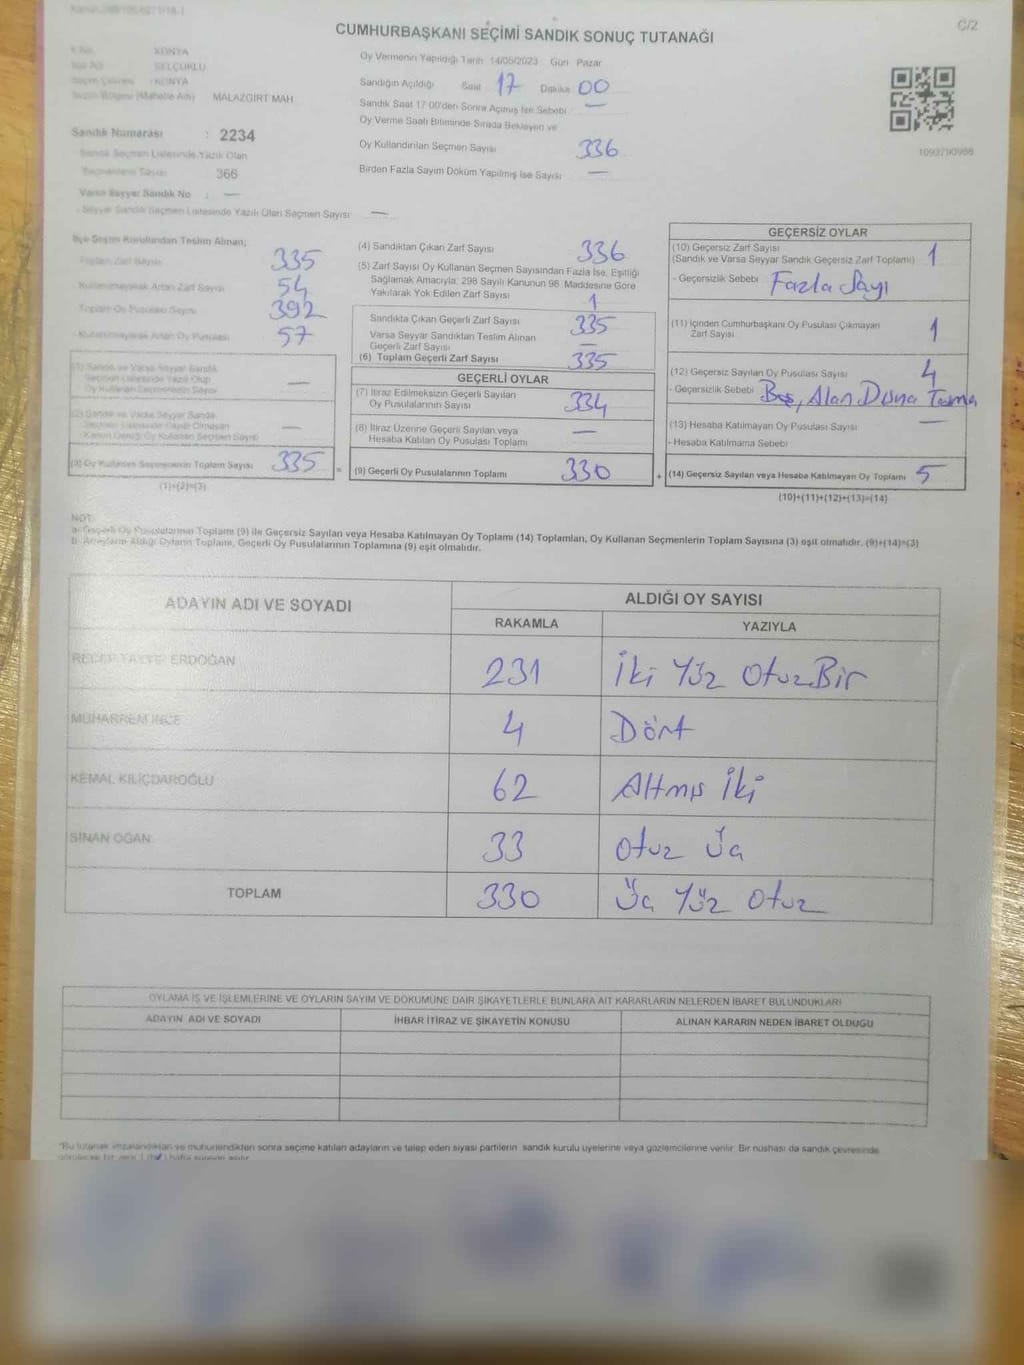 C/2
CUMHURBAŞKANI SEÇİMİ SANDIK SONUÇ TUTANAĞI
KONYA
SELÇUKLU
KONYA
MALAZGİRT MAH
Sandık Numarası : 2234
Sandık Seçmen Listesinde Yazılı Olan
Seçmenlerin Sayısı 366
Varsa Seyyar Sandık No : —
- Seyyar Sandık Seçmen Listesinde Yazılı Olan Seçmen Sayısı —
Oy Vermenin Yapıldığı Tarih 14/05/2023 Gün Pazar
Sandığın Açıldığı Saat 17 Dakika 00
Sandık Saat 17:00'den Sonra Açılmış İse Sebebi —
Oy Verme Saati Bitiminde Sırada Bekleyen ve
Oy Kullandırılan Seçmen Sayısı 336
Birden Fazla Sayım Döküm Yapılmış İse Sayısı —
1093790988
İlçe Seçim Kurulundan Teslim Alınan;
Toplam Zarf Sayısı 335
- Kullanılmayarak Artan Zarf Sayısı 54
Toplam Oy Pusulası Sayısı 392
- Kullanılmayarak Artan Oy Pusulası 57
(1) Sandık ve Varsa Seyyar Sandık
Seçmen Listesinde Yazılı Olup
Oy Kullanan Seçmenlerin Sayısı —
(2) Sandık ve Varsa Seyyar Sandık
Seçmen Listesinde Kayıtlı Olmayan
Kanun Gereği Oy Kullanan Seçmen Sayısı —
(3) Oy Kullanan Seçmenlerin Toplam Sayısı 335
(1)+(2)=(3)
(4) Sandıktan Çıkan Zarf Sayısı 336
(5) Zarf Sayısı Oy Kullanan Seçmen Sayısından Fazla İse, Eşitliği
Sağlamak Amacıyla; 298 Sayılı Kanunun 98. Maddesine Göre
Yakılarak Yok Edilen Zarf Sayısı 1
Sandıkta Çıkan Geçerli Zarf Sayısı 335
Varsa Seyyar Sandıktan Teslim Alınan
Geçerli Zarf Sayısı —
(6) Toplam Geçerli Zarf Sayısı 335
GEÇERLİ OYLAR
(7) İtiraz Edilmeksizin Geçerli Sayılan
Oy Pusulalarının Sayısı 334
(8) İtiraz Üzerine Geçerli Sayılan veya
Hesaba Katılan Oy Pusulası Toplamı —
= (9) Geçerli Oy Pusulalarının Toplamı 330
GEÇERSİZ OYLAR
(10) Geçersiz Zarf Sayısı
(Sandık ve Varsa Seyyar Sandık Geçersiz Zarf Toplamı) 1
- Geçersizlik Sebebi Fazla Sayı
(11) İçinden Cumhurbaşkanı Oy Pusulası Çıkmayan
Zarf Sayısı 1
(12) Geçersiz Sayılan Oy Pusulası Sayısı 4
- Geçersizlik Sebebi Boş, Alan Dışına Taşma
(13) Hesaba Katılmayan Oy Pusulası Sayısı —
- Hesaba Katılmama Sebebi
+ (14) Geçersiz Sayılan veya Hesaba Katılmayan Oy Toplamı 5
(10)+(11)+(12)+(13)=(14)
NOT:
a- Geçerli Oy Pusulalarının Toplamı (9) ile Geçersiz Sayılan veya Hesaba Katılmayan Oy Toplamı (14) Toplamları, Oy Kullanan Seçmenlerin Toplam Sayısına (3) eşit olmalıdır. (9)+(14)=(3)
b- Adayların Aldığı Oyların Toplamı, Geçerli Oy Pusulalarının Toplamına (9) eşit olmalıdır.
ADAYIN ADI VE SOYADI ALDIĞI OY SAYISI
RAKAMLA YAZIYLA
RECEP TAYYİP ERDOĞAN 231 İki Yüz Otuz Bir
MUHARREM İNCE 4 Dört
KEMAL KILIÇDAROĞLU 62 Altmış İki
SİNAN OĞAN 33 Otuz Üç
TOPLAM 330 Üç Yüz Otuz
OYLAMA İŞ VE İŞLEMLERİNE VE OYLARIN SAYIM VE DÖKÜMÜNE DAİR ŞİKAYETLERLE BUNLARA AİT KARARLARIN NELERDEN İBARET BULUNDUKLARI
ADAYIN ADI VE SOYADI İHBAR İTİRAZ VE ŞİKAYETİN KONUSU ALINAN KARARIN NEDEN İBARET OLDUĞU
*Bu tutanak imzalandıktan ve mühürlendikten sonra seçime katılan adayların ve talep eden siyasi partilerin sandık kurulu üyelerine veya gözlemcilerine verilir. Bir nüshası da sandık çevresinde